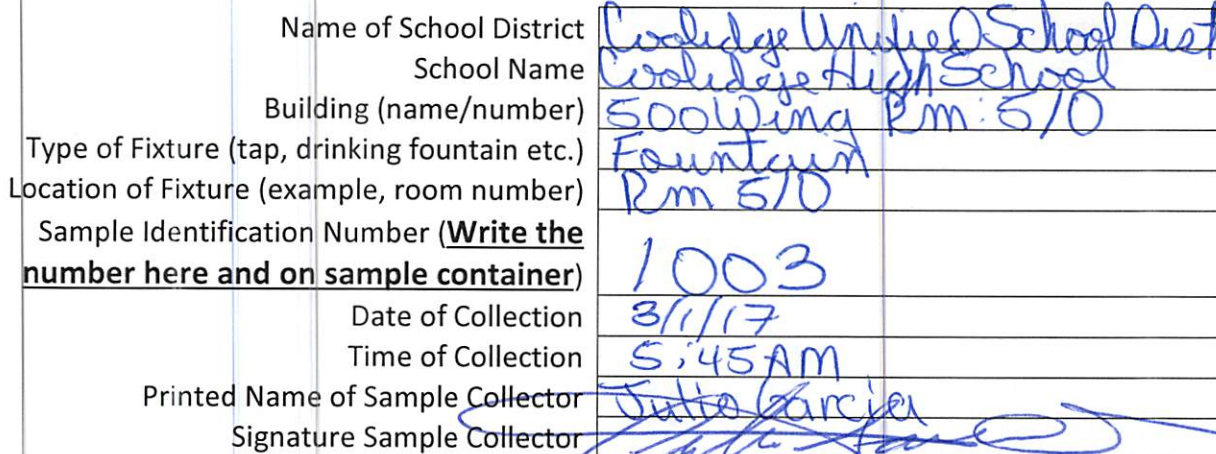 Name of School District Coolidge Unified School Dist
School Name Coolidge High School
Building (name/number) 500 Wing Rm: 510
Type of Fixture (tap, drinking fountain etc.) Fountain
Location of Fixture (example, room number) Rm 510
Sample Identification Number (Write the
number here and on sample container) 1003
Date of Collection 3/1/17
Time of Collection 5:45 AM
Printed Name of Sample Collector Julio Garcia
Signature Sample Collector